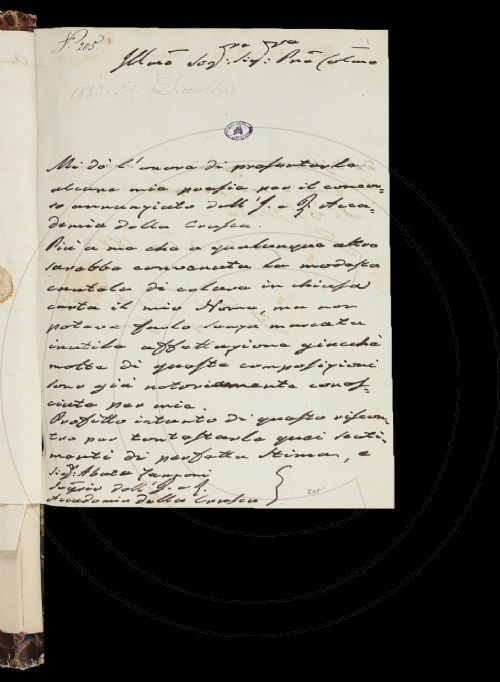 N.° 205.
Illmo Sigre: Sigre: Prõn Colmo
1823. 31. Dicembre
Mi do l'onore di presentarle
alcune mie poesie per il concor-
so annunziato dell'I. e R. Acca-
demia della Crusca.
Più a me che a qualunque altro
sarebbe convenuta la modesta
cautela di celare in chiusa
carta il mio Nome, ma non
poteva farlo senza marcata
inutile affettazione giacchè
molte di queste composizioni
sono già notoriamente conos-
ciute per mie.
Profitto intanto di questo riscon-
tro per tontestarle quei senti-
menti di perfetta stima, e
Sigr: Abate Zannoni
Segrio dell'I. e R.
Accademia della Crusca
205